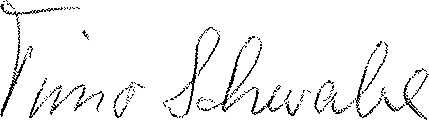 Timo Schwabe